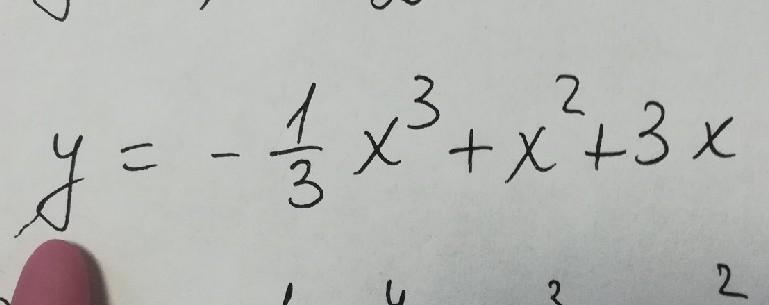 y = - 1/3 x³ + x² + 3x